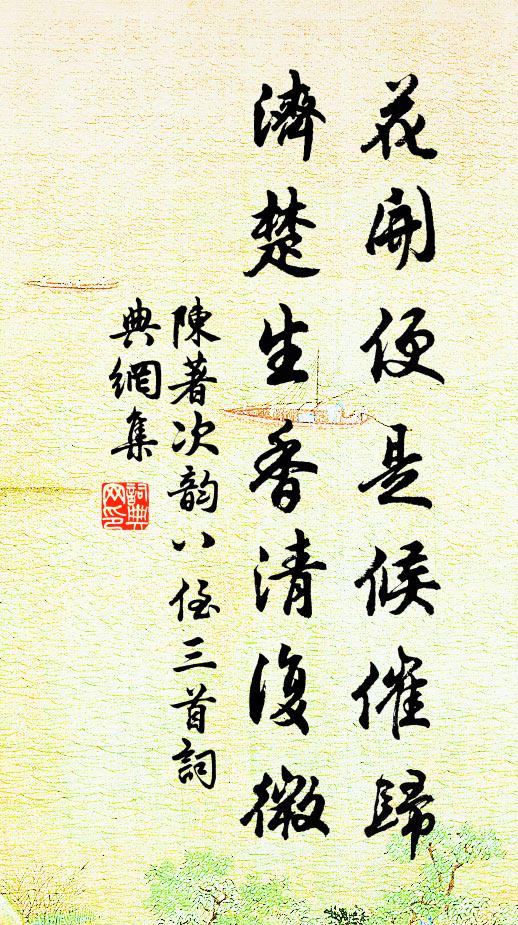 花開便是候催歸
濟楚生香清復微
陳著次韵八侄三首詞
典網集
詞典
网印